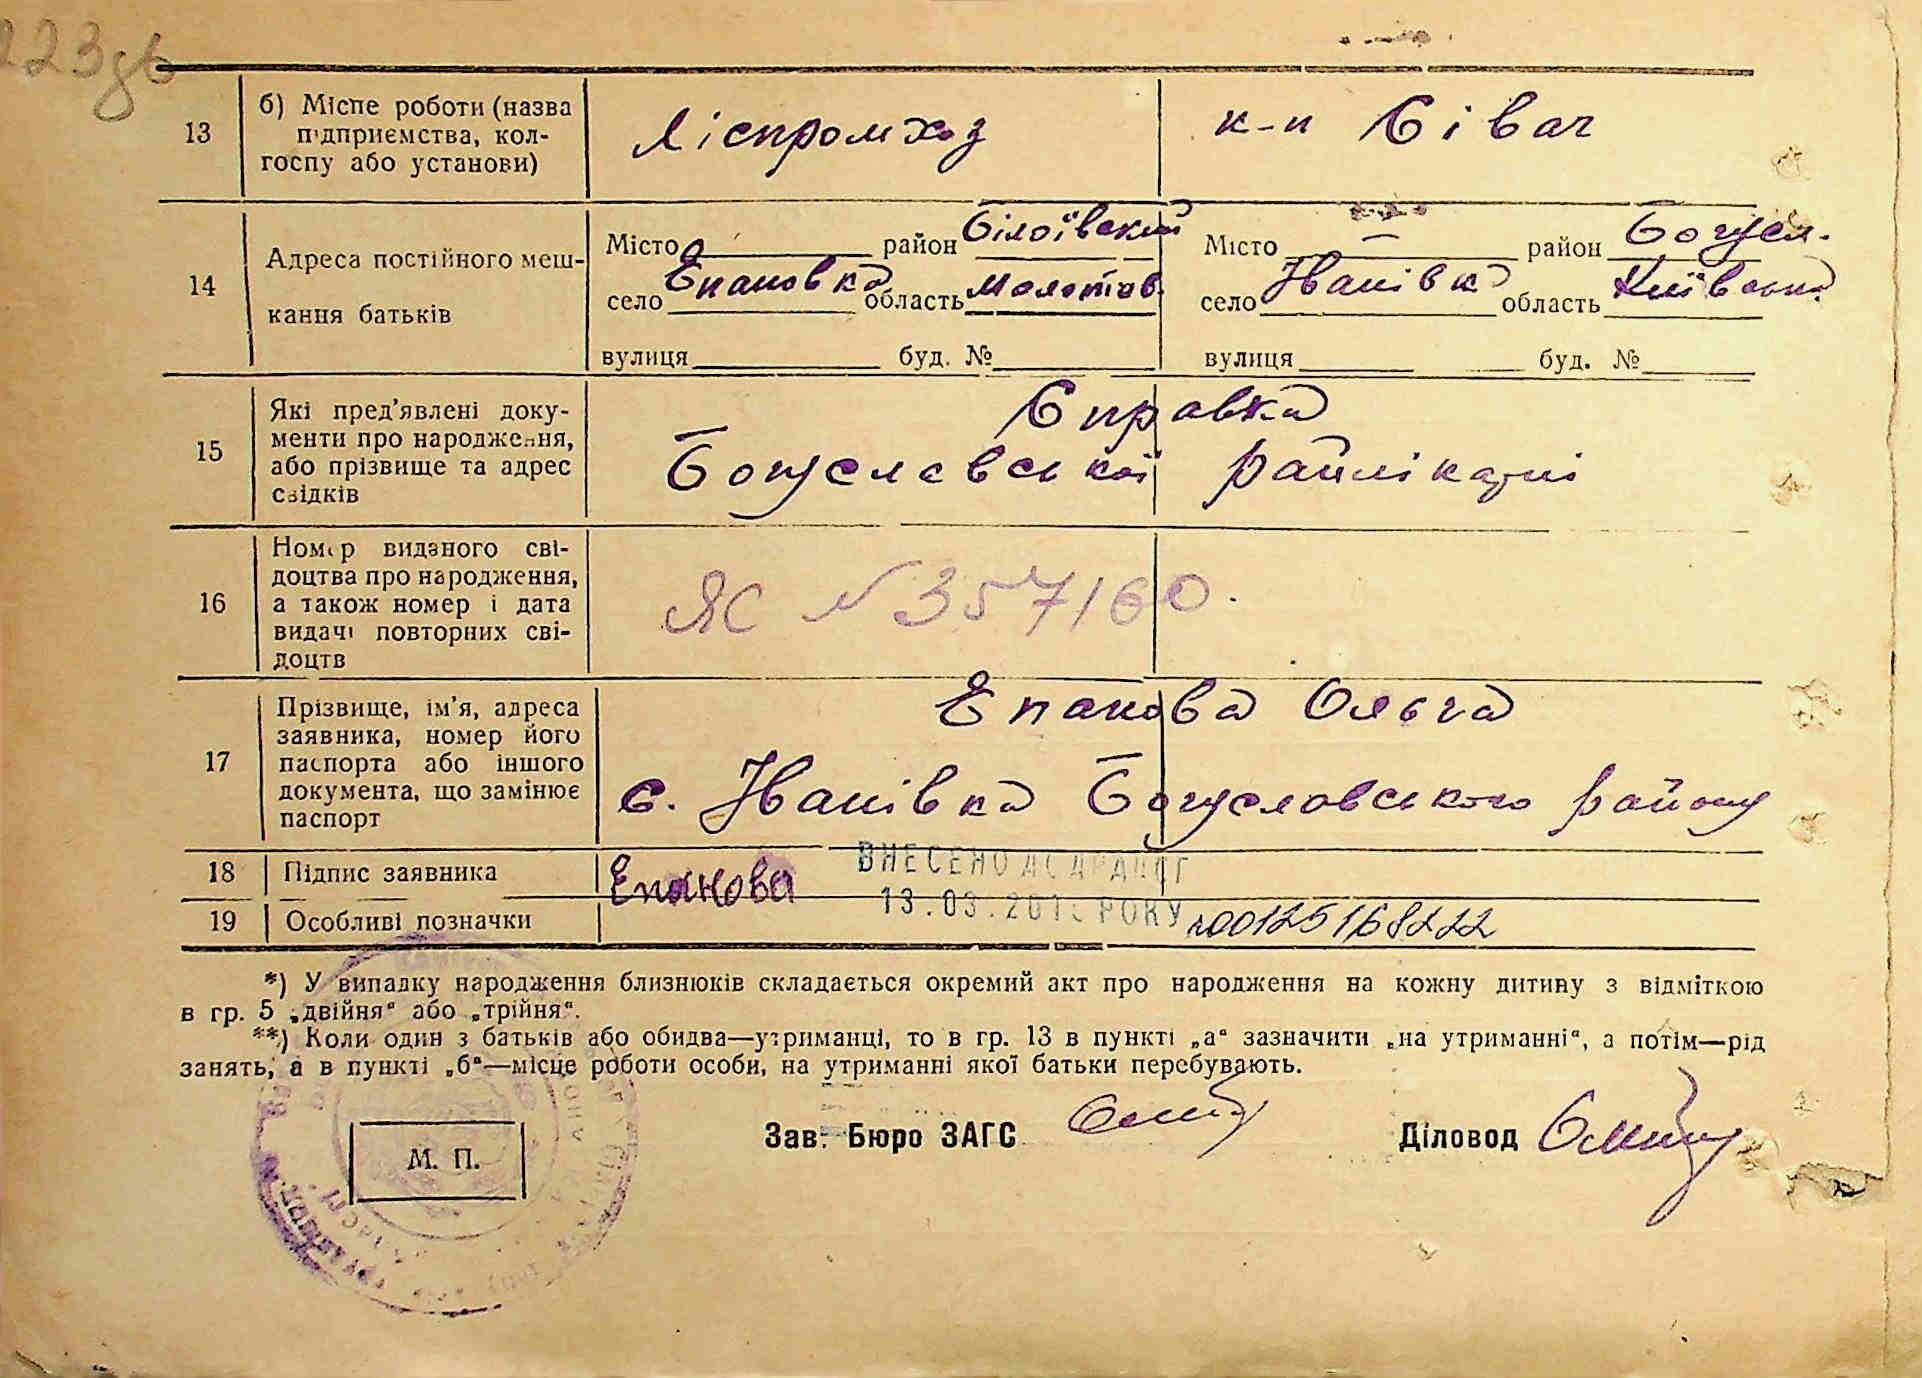 223зв
13
б) Міспе роботи (назва підприємства, кол-
госпу або установи)
Ліспромхоз
к-п Сівач
14
Адреса постійного меш-
кання батьків
Місто район Білоївський
село Епановка область Молотов.
вулиця буд. №
Місто — район Богусл.
село Іванівка область Київська
вулиця буд. №
15
Які пред'явлені доку-
менти про народження,
або прізвище та адрес
свідків
Справка
Богуславської райлікарні
16
Номер виданого сві-
доцтва про народження,
а також номер і дата
видачі повторних сві-
доцтв
ЯС № 357160.
17
Прізвище, ім'я, адреса
заявника, номер його
паспорта або іншого
документа, що замінює
паспорт
Епанова Ольга
с. Іванівка Богуславського району
18
Підпис заявника
Епанова
ВНЕСЕНО ДО ДРАЦСГ
13.03.201 РОКУ
19
Особливі позначки
00125168222
*) У випадку народження близнюків складається окремий акт про народження на кожну дитину з відміткою
в гр. 5 „двійня“ або „трійня“.
**) Коли один з батьків або обидва—утриманці, то в гр. 13 в пункті „а“ зазначити „на утриманні“, а потім—рід
занять, а в пункті „б“—місце роботи особи, на утриманні якої батьки перебувають.
М. П.
Зав. Бюро ЗАГС
Діловод